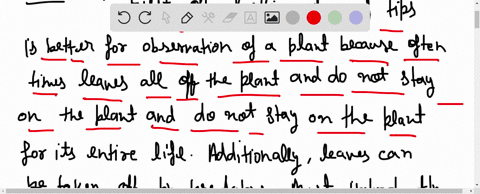 tips
is better for observation of a plant because often
times leaves all off the plant and do not stay
on the plant and do not stay on the plant
for its entire life. Additionally, leaves can
be taken off by